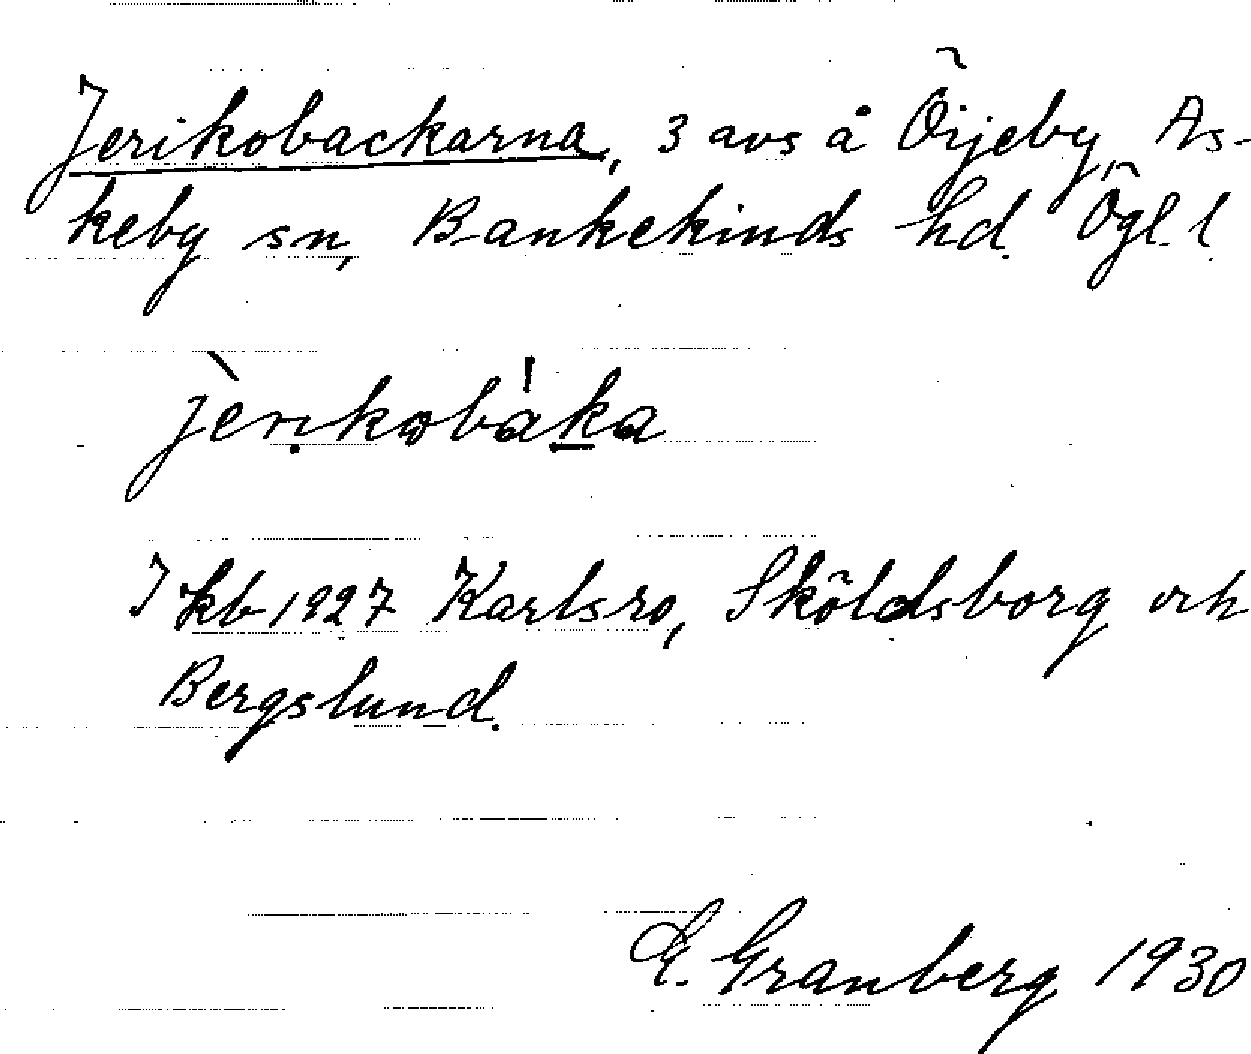 Jerikobackarna, 3 avs å Örjeby, As-
keby sn, Bankekinds hd. Ögl. l.
jèrikobáka
I kb 1927 Karlsro, Sköldsborg och
Bergslund.
E. Granberg 1930